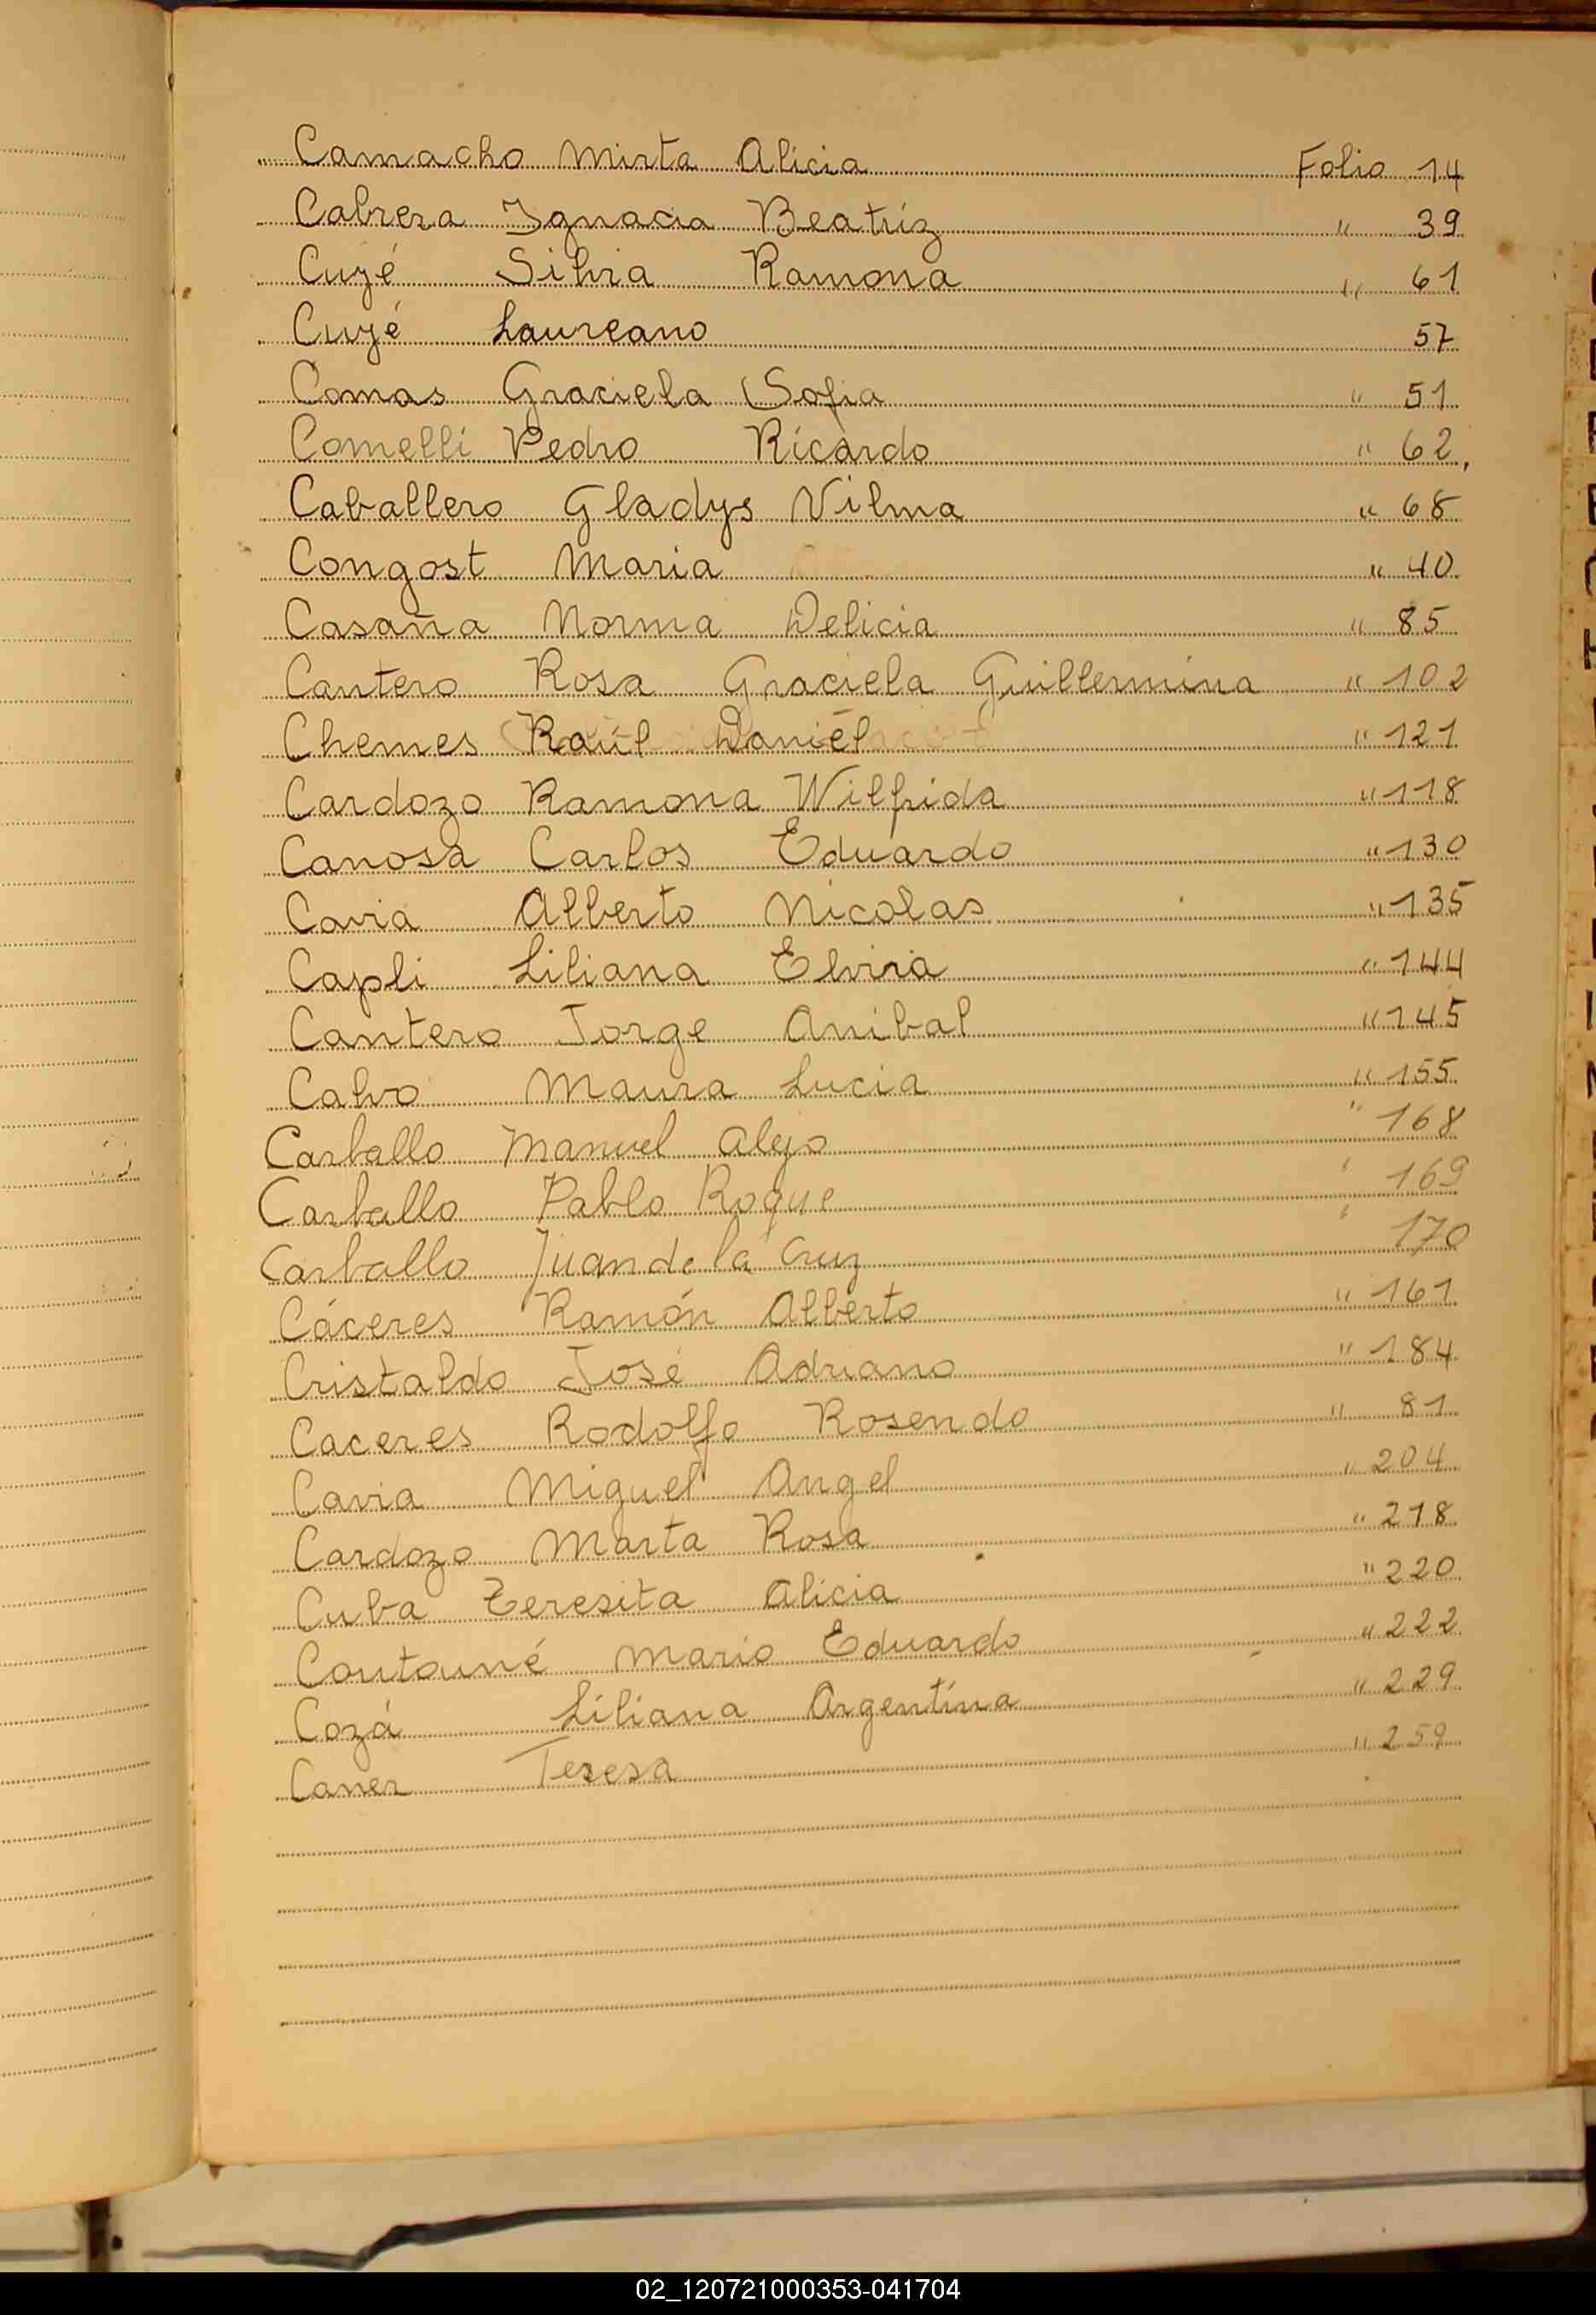 Camacho Mirta Alicia Folio 14
Cabrera Ignacia Beatríz " 39
Cuzé Silvia Ramona " 61
Cuzé Laureano 57
Comas Graciela Sofia " 51
Comelli Pedro Ricardo " 62
Caballero Gladys Vilma " 68
Congost Maria " 40
Casaña Norma Delicia " 85
Cantero Rosa Graciela Guillermina " 102
Chemes Raúl Daniel " 121
Cardozo Ramona Wilfrida " 118
Canosa Carlos Eduardo " 130
Cavia Alberto Nicolas " 135
Capli Liliana Elvira " 144
Cantero Jorge Anibal " 145
Calvo Maura Lucia " 155
Carballo Manuel Alejo " 168
Carballo Pablo Roque " 169
Carballo Juan de la Cruz " 170
Cáceres Ramón Alberto " 161
Cristaldo José Adriano " 184
Caceres Rodolfo Rosendo " 81
Cavia Miguel Angel " 204
Cardozo Marta Rosa " 218
Cuba Teresita Alicia " 220
Mario Eduardo " 222
Cozá Liliana Argentina " 229
Caner Teresa " 259
02_120721000353-041704